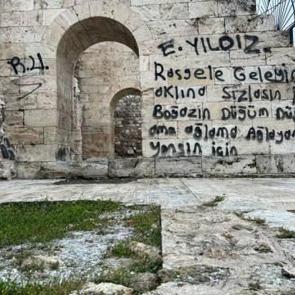 E. YILDIZ.
R.U.
Rasgele Geleyim
aklına Sızlasın
Boğazın Düğüm Dü
ama ağlama Ağlaya
yansın için